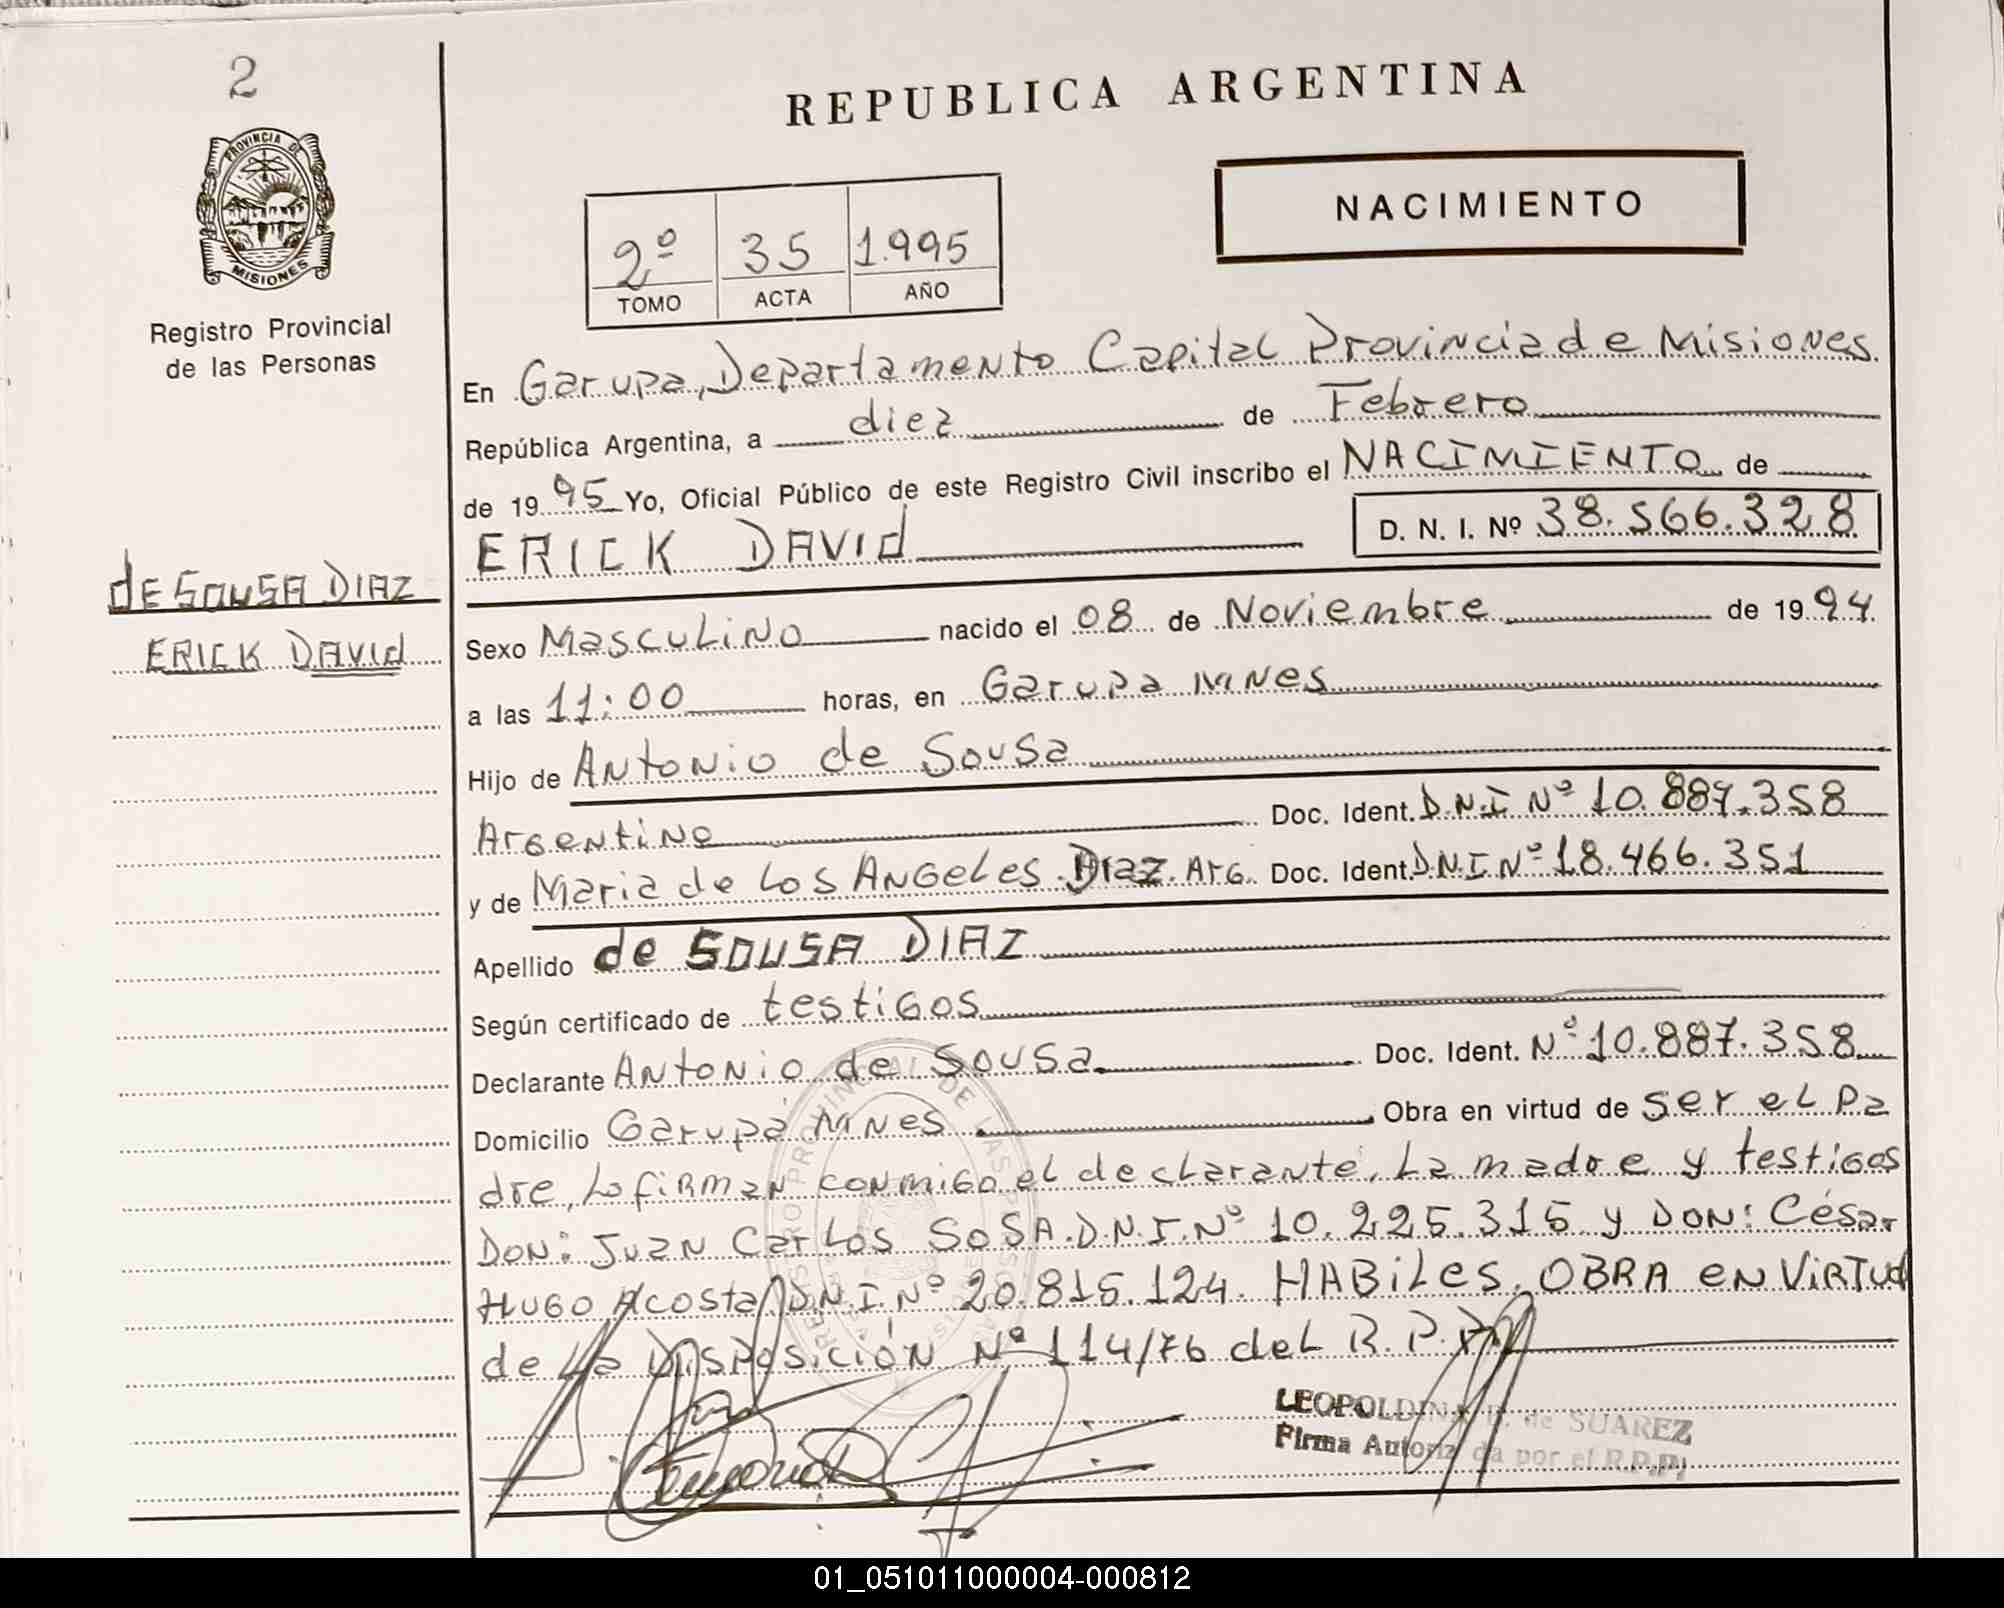 2
REPUBLICA ARGENTINA
PROVINCIA DE
MISIONES
Registro Provincial
de las Personas
NACIMIENTO
2º 35 1.995
TOMO ACTA AÑO
En Garupa, Departamento Capital Provincia de Misiones
República Argentina, a diez de Febrero
de 19 95 Yo, Oficial Público de este Registro Civil inscribo el NACIMIENTO de
ERICK DAVId D. N. I. Nº 38.566.328
de SOUSA DIAZ
ERICK DAVId
Sexo Masculino nacido el 08 de Noviembre de 19 94.
a las 11:00 horas, en Garupa MNes
Hijo de Antonio de Sousa
Argentino Doc. Ident. D.N.I Nº 10.887.358
y de Maria de Los Angeles Diaz. Arg. Doc. Ident D.N.I Nº 18.466.351
Apellido de SOUSA DIAZ
Según certificado de testigos
Declarante Antonio de Sousa Doc. Ident. Nº 10.887.358
Domicilio Garupa MNes Obra en virtud de ser el pa
dre, Lo firman conmigo el declarante, La madre y testigos
Don: Juan Carlos SOSA. D.N.I. Nº 10.225.315 y DON: César
HUGO Acosta D.N.I. Nº 20.815.124. HABiLes. OBRA en VirTud
de La Disposición Nº 114/76 del R.P.P.
LEOPOLDINA de SUAREZ
Firma Autorizada por el R.P.P.
01_051011000004-000812